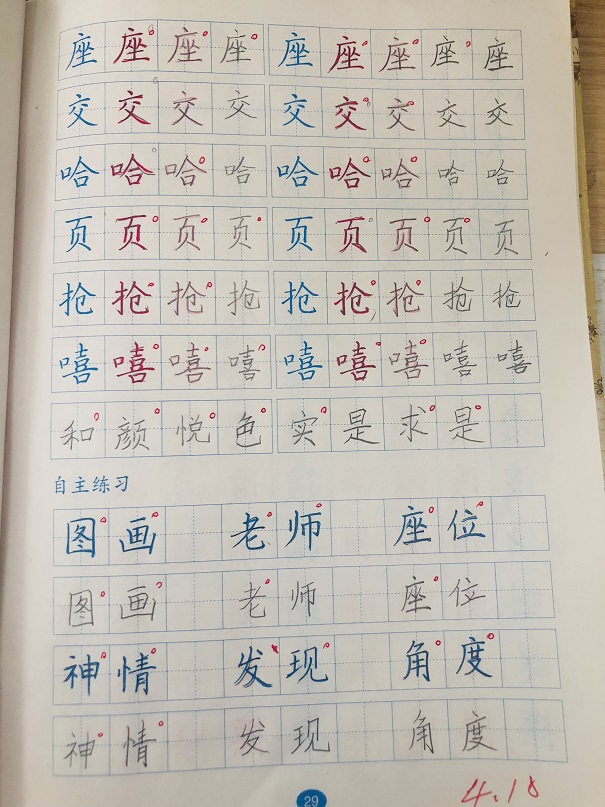 座座座座座座座座座
交交交交交交交交交
哈哈哈哈哈哈哈哈哈
页页页页页页页页页
抢抢抢抢抢抢抢抢抢
嘻嘻嘻嘻嘻嘻嘻嘻嘻
和颜悦色实是求是
自主练习
图画 老师 座位
图画 老师 座位
神情 发现 角度
神情 发现 角度
29
4.18